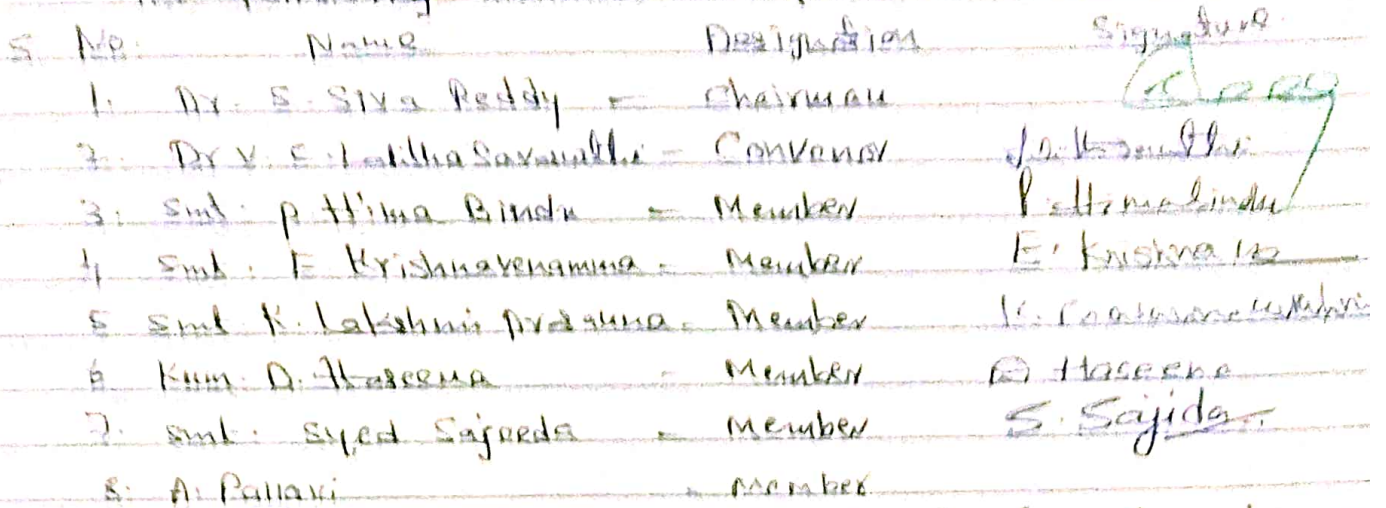 S. No. Name Designation Signature
1. Dr. S. Siva Reddy - Chairman
2. Dr V. C. Lalitha Saraswathi - Convenor
3. Smt. P Hima Bindu - Member P. Himabindu
4 Smt. E Krishnavenamma - Member E. Krishna
5 Smt K. Lakshmi Prasauna - Member K.
6 Kum. D. Haseena - Member D Haseena
7. Smt. Syed Sajeeda - Member S. Sajida
8. A. Pallavi - Member